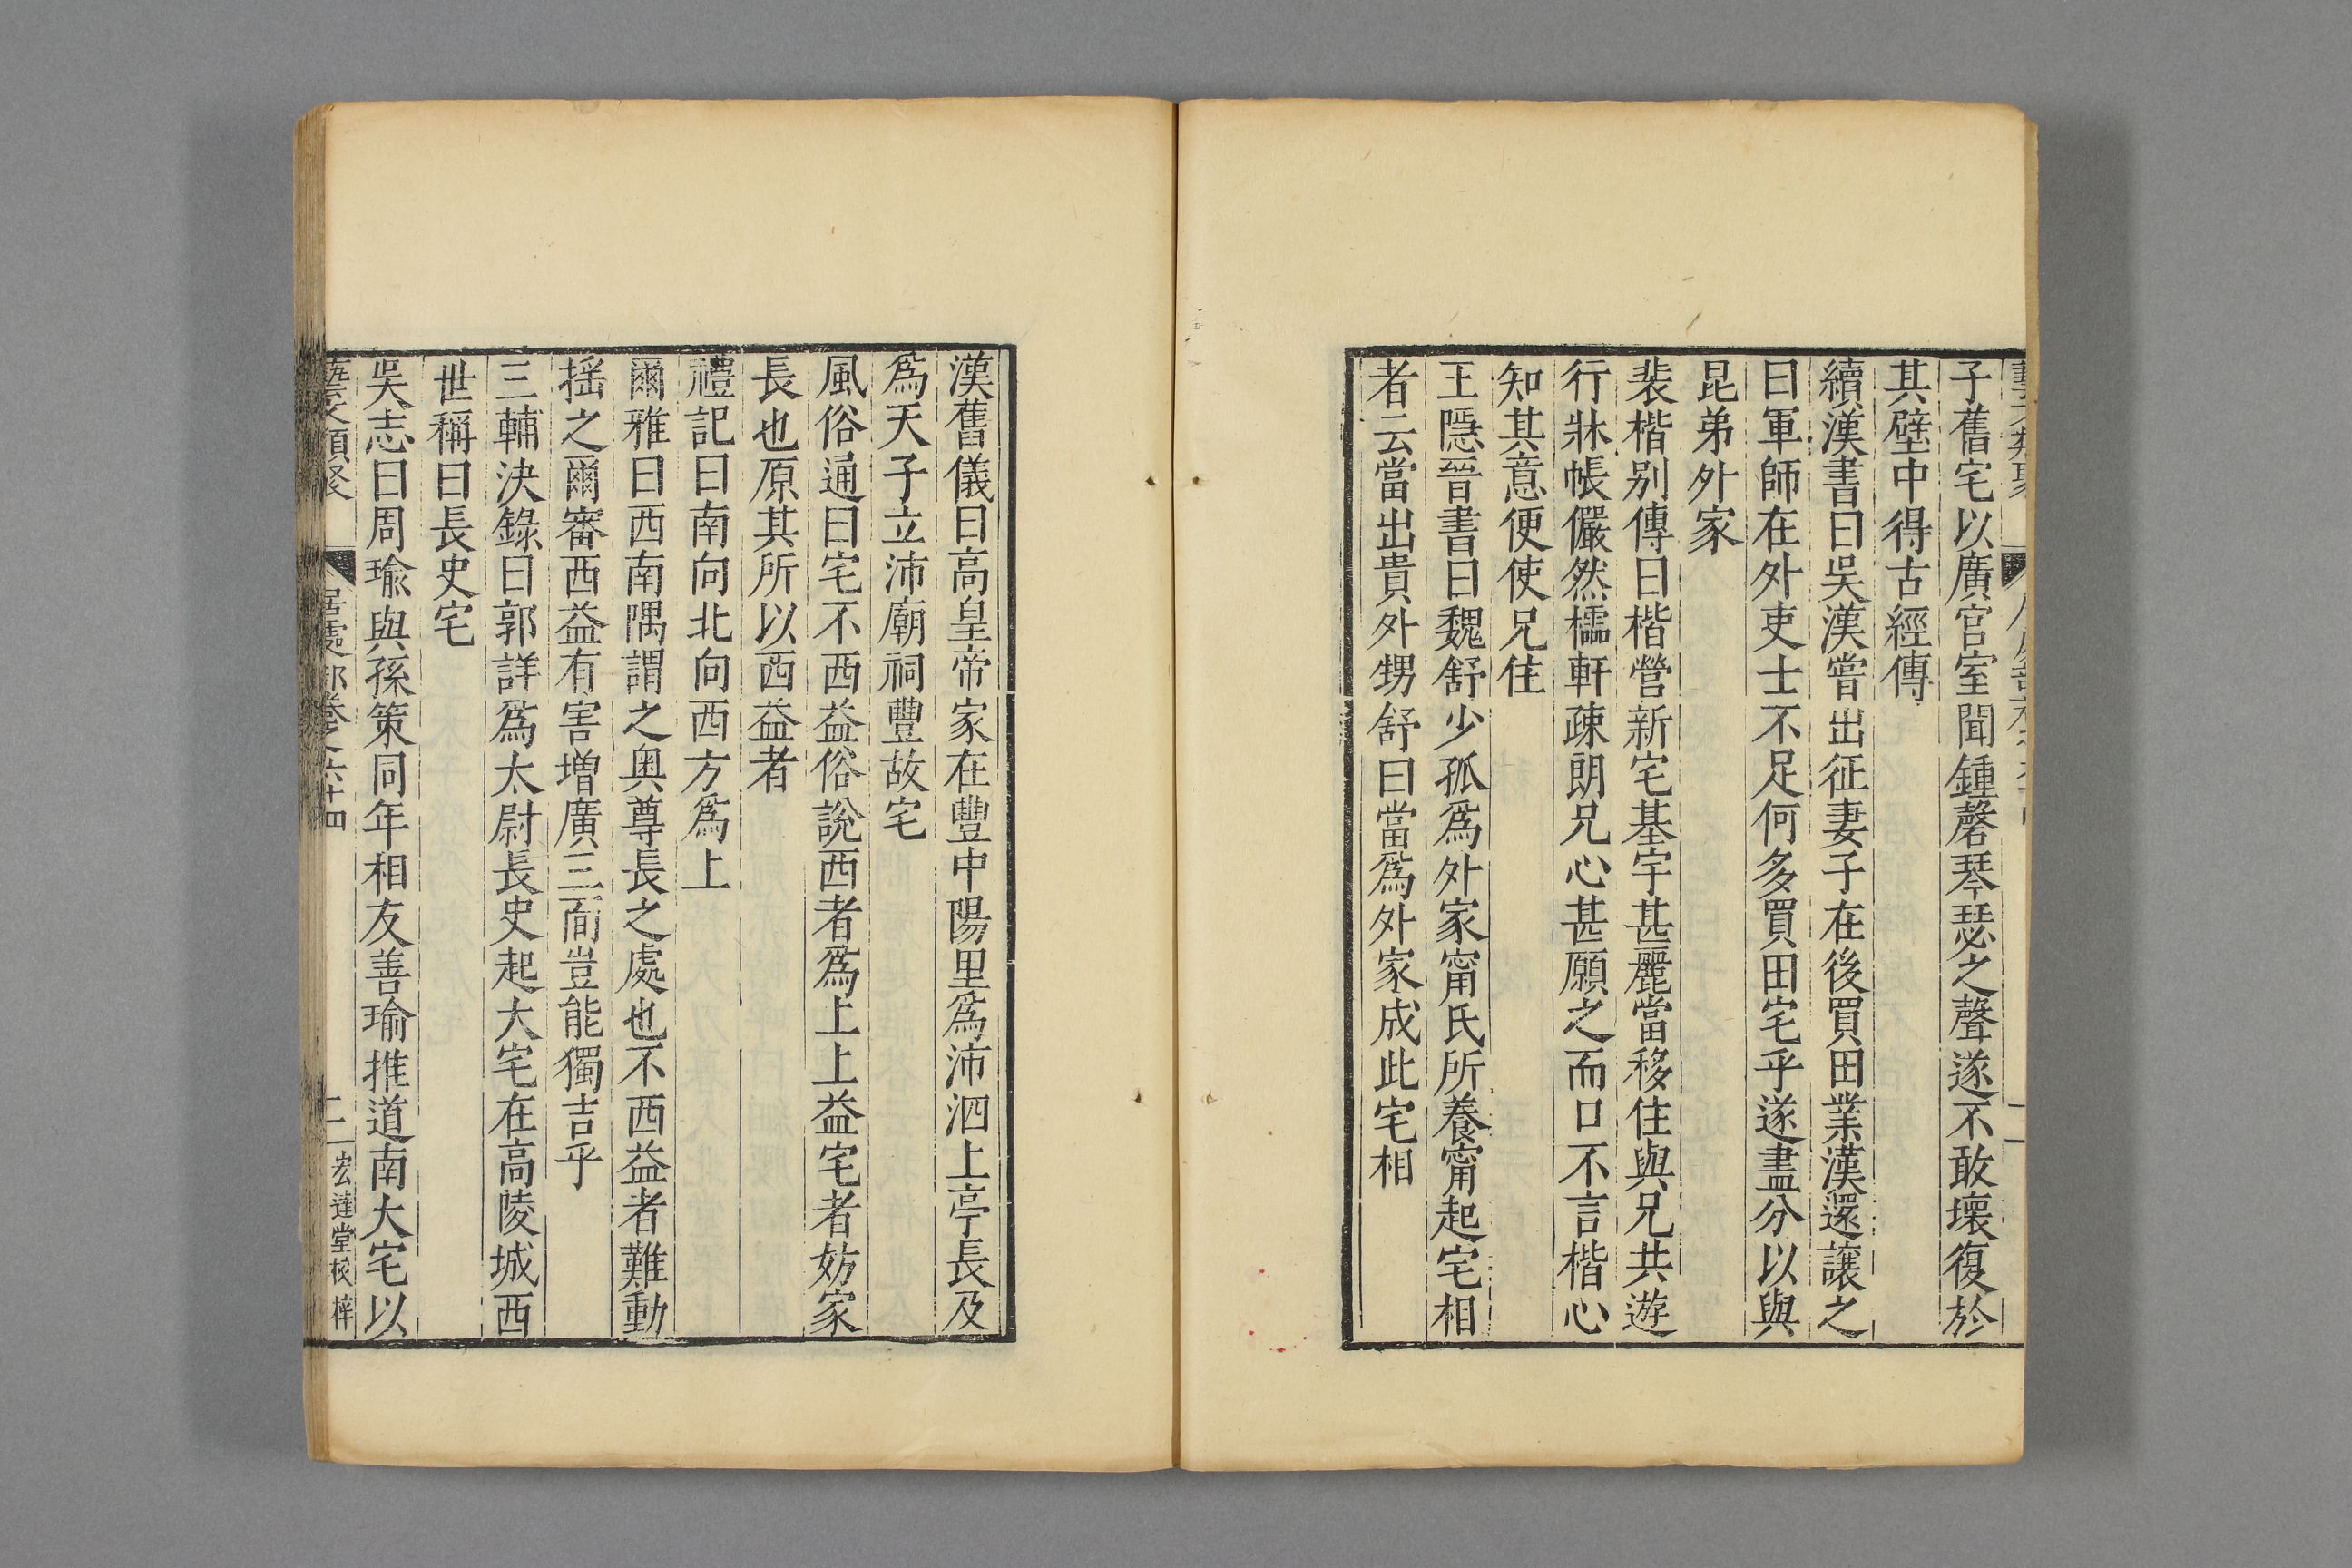 子舊宅以廣宮室聞鍾磬琴瑟之聲遂不敢壞復於
其壁中得古經傳
續漢書曰吳漢嘗出征妻子在後買田業漢還讓之
曰軍師在外吏士不足何多買田宅乎遂盡分以與
昆弟外家
裴楷别傳曰楷營新宅基宇甚麗當移住與兄共遊
行牀帳儼然櫺軒疎朗兄心甚願之而口不言楷心
知其意便使兄住
王隱晉書曰魏舒少孤爲外家甯氏所養甯起宅相
者云當出貴外甥舒曰當爲外家成此宅相
漢舊儀曰高皇帝家在豐中陽里爲沛泗上亭長及
爲天子立沛廟祠豐故宅
風俗通曰宅不西益俗說西者爲上上益宅者妨家
長也原其所以西益者
禮記曰南向北向西方爲上
爾雅曰西南隅謂之奥尊長之處也不西益者難動
揺之爾審西益有害増廣三面豈能獨吉乎
三輔決錄曰郭詳爲太尉長史起大宅在高陵城西
世稱曰長史宅
吳志曰周瑜與孫策同年相友善瑜推道南大宅以
藝文類聚 居處部卷之六十四 二 宏達堂校梓